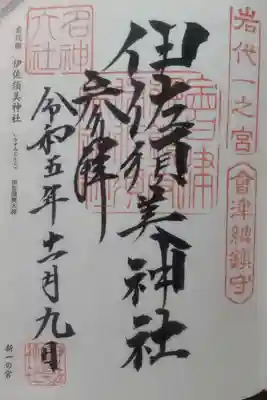 岩代一之宮
會津總鎮守
伊佐須美神社
奉拝
名神大社
令和五年十一月九日
伊佐須美神社
新一の宮